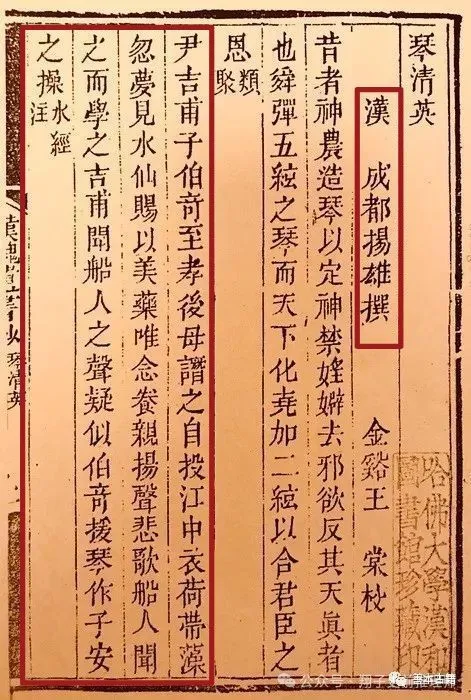 琴清英
漢 成都揚雄撰 金谿王 棠校
昔者神農造琴以定神禁婬僻去邪欲反其天真者
也舜彈五絃之琴而天下化堯加二絃以合君臣之
恩類聚
尹吉甫子伯奇至孝後母譖之自投江中衣荷帶藻
忽夢見水仙賜以美藥唯念養親揚聲悲歌船人聞
之而學之吉甫聞船人之聲疑似伯奇援琴作子安
之操水經注
琴清英
哈佛大學漢和
圖書館珍藏印
公众号 翔子
善本古籍